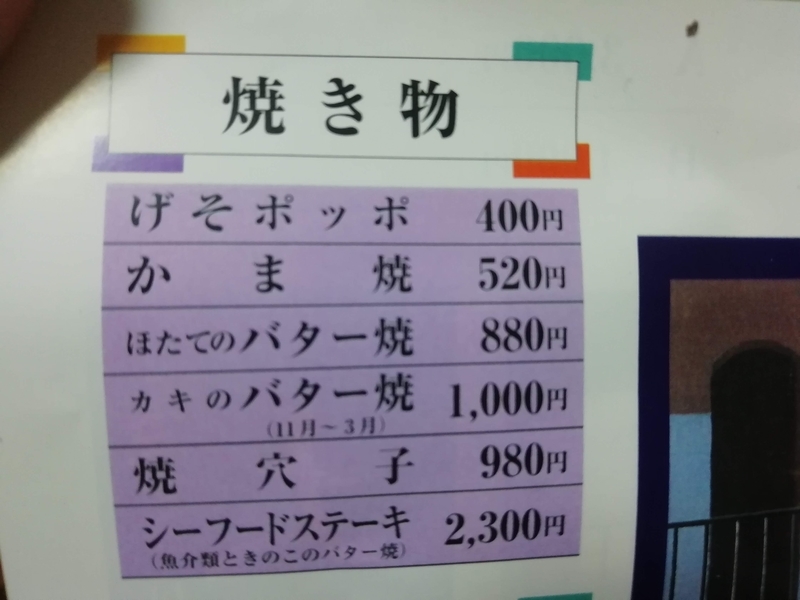 焼き物
げそポッポ 400円
かま焼 520円
ほたてのバター焼 880円
カキのバター焼 1,000円
(11月~3月)
焼穴子 980円
シーフードステーキ 2,300円
(魚介類ときのこのバター焼)